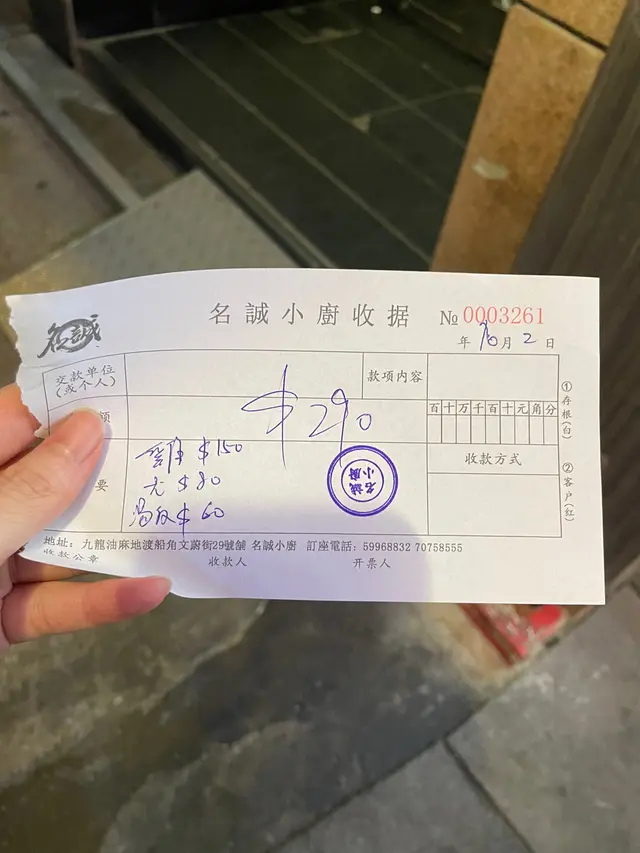 名誠
名誠小廚收据 № 0003261
年 10 月 2 日
交款单位
(或个人)
款项内容
额
$290
百十万千百十元角分
收款方式
要
$150
$80
$60
名誠
小廚
①存根(白)
②客户(红)
地址：九龍油麻地渡船角文蔚街29號舖 名誠小廚 訂座電話：59968832 70758555
收款公章 收款人 开票人